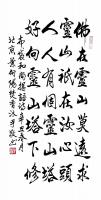 佛在靈山莫遠求
靈山只在汝心頭
人人有個靈山塔
好向靈山塔下修
和尚辛丑
北京